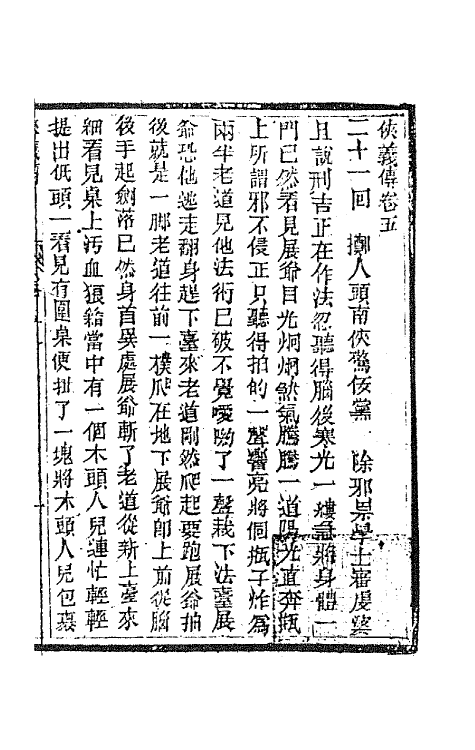 俠義傳卷五
二十一回　擲人頭南俠驚佞黨　除邪祟學士審虔婆
且說刑吉正在作法忽聽得腦後寒光一縷急將身體一
閃已然看見展爺目光炯炯煞氣騰騰一道陽光直奔瓶
上所謂邪不侵正只聽得拍的一聲響亮將個瓶子炸爲
兩半老道見他法術已破不覺噯喲了一聲栽下法臺展
爺恐他逃走翻身趕下臺來老道剛然爬起要跑展爺抽
後就是一脚老道往前一撲爬在地下展爺卽上前從腦
後手起劍落已然身首異處展爺斬了老道從新上臺來
細看見桌上污血狼籍當中有一個木頭人兒連忙輕輕
提出低頭一看見有圍桌便扯了一塊將木頭人兒包裹